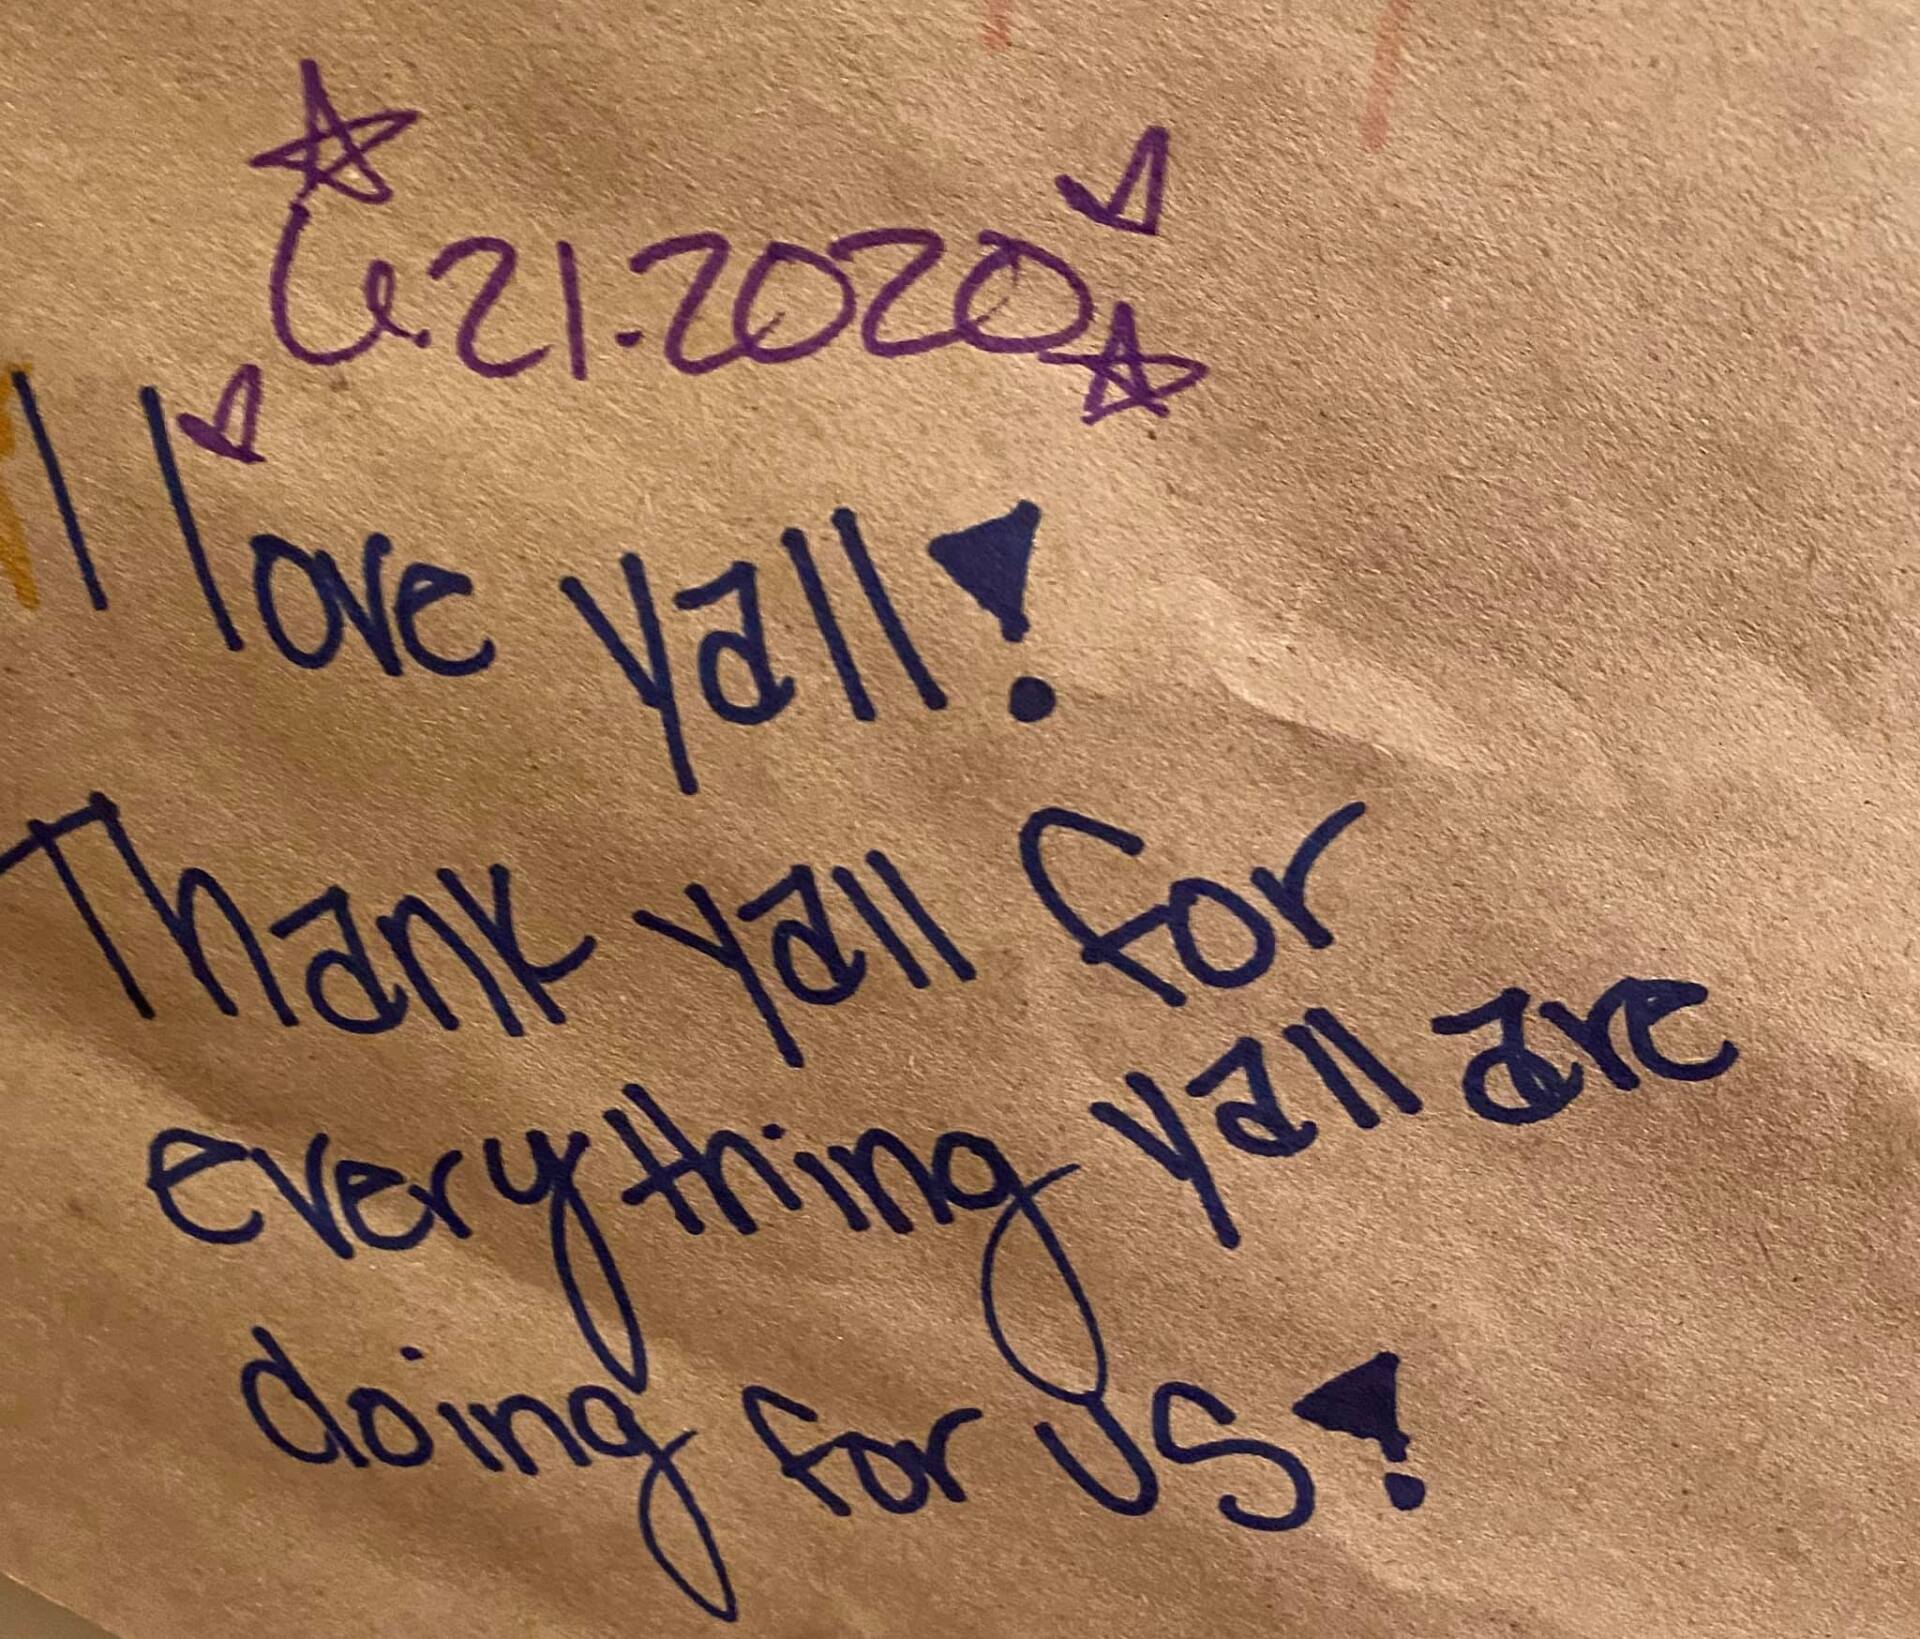 6.21.2020
I love yall!
Thank yall for
everything yall are
doing for us!